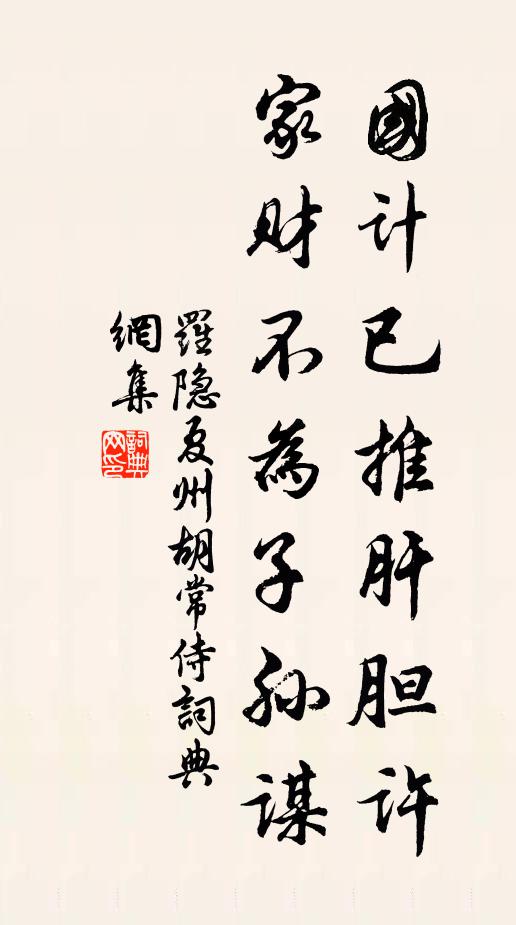 國计已推肝胆许
家财不為子孙谋
羅隐夏州胡常侍詞典
網集
詞典
网印